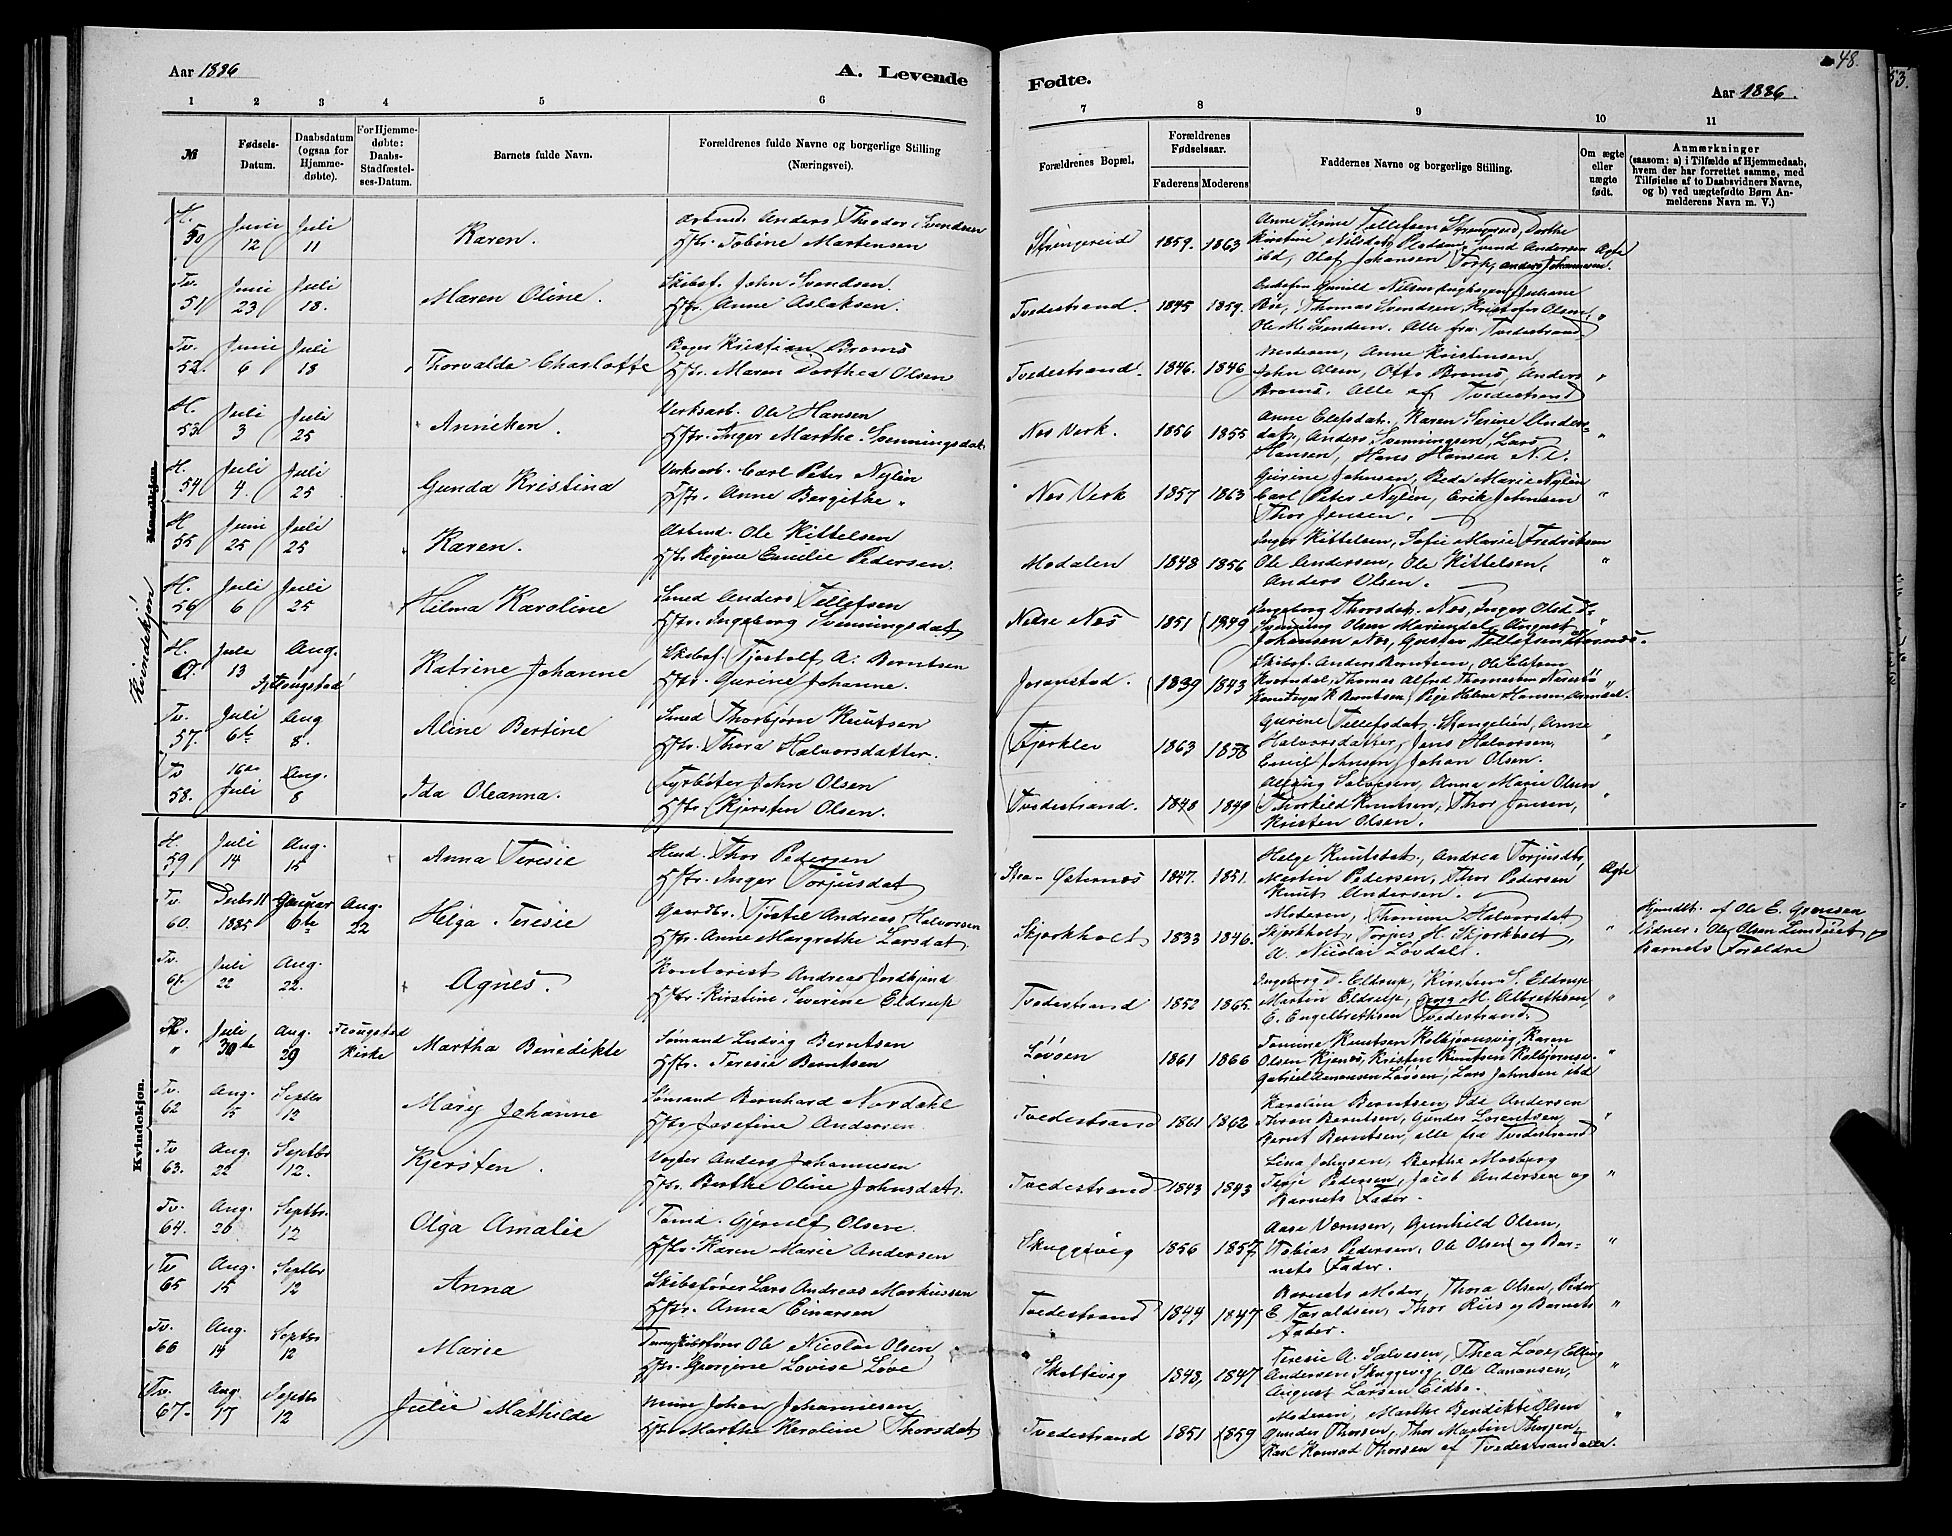 Aar 1886
A. Levende
Fødte.
Aar 1886.
48.
53.
1 2 3 4 5 6 7 8 9 10 11
№
Fødsels-Datum.
Daabsdatum (ogsaa for Hjemme-døbte).
For Hjemme-døbte: Daabs-Stadfæstel-ses-Datum.
Barnets fulde Navn.
Forældrenes fulde Navne og borgerlige Stilling (Næringsvei).
Forældrenes Bopæl.
Forældrenes Fødselsaar.
Faderens Moderens
Faddernes Navne og borgerlige Stilling.
Om ægte eller uægte født.
Anmærkninger
(saasom: a) i Tilfælde af Hjemmedaab,
hvem der har forrettet samme, med
Tilføielse af to Daabsvidners Navne,
og b) ved uægtefødte Børn An-
melderens Navn m. V.)
Kvindekjøn
Kvindekjøn.
H. 50 Juni 12 Juli 11 Karen. Anders Theodor Svendsen
Hstr. Tobine Martensen
Strengereid 1859. 1863
Anne Serine Tellefsen Strengereid, Dorthe
Kirstine Nilsdat, Svend Andersen Ægte
ibd, Olaf Johansen Anders Johannesen.
Tv. 51 Juni 23 Juli 18. Maren Oline. Skibsf. John Svendsen
Hstr. Anne Aslaksen.
Tvedestrand. 1845 1859.
Gunild Nilsen Juliane
Thomas Svendsen, Kristofer Olsen, "
Ole M. Svendsen. Alle fra Tvedestrand
Tv. 52. Juni 6 Juli 18 Thorvalda Charlotte Kristian Bromo
Hstr. Maren Dorthea Olsen
Tvedestrand. 1846. 1846
Moderen, Anne Kristensen,
John Olsen, Otto Bromo, Anders "
Bromo. Alle af Tvedestrand
H. 53 Juli 3 Juli 25 Anniken. Verksarb. Ole Hansen
Hstr. Inger Marthe Svenningsdat.
Nes Verk. 1856 1855
Anne Elefsdat, Karen Serine Anders-
dat, Anders Svenningsen, Lars "
Hansen, Hans Hansen N.V.
H. 54 Juli 4. Juli 25 Gunda Kristina Verksarb. Carl Peter Nylén
Hstr. Anne Bergithe "
Nes Verk 1857 1863
Gurine Johnsen, Beda Marie Nylén
Carl Peter Nylén, Erik Johnsen "
Thor Jensen.
H 55 Juni 25 Juli 25 Karen. Arbmd. Ole Kittelsen
Hstr. Regine Emilie Pedersen.
Modalen 1848 1856
Inger Kittelsen, Sofie Marie Fredriksen
Ole Andersen, Ole Kittelsen, "
Anders Olsen.
H. 56 Juli 6 Juli 25 Hilma Karoline Smed Anders Tellefsen
Hstr. Ingeborg Svenningsdat
Nedre Nes 1851 1849
Ingeborg Thorsdat. Nes, Inger Olsd.
Svenning Olsen August "
Johansen Nes, Gustav Tellefsen
H. Juli 13 Aug. 1 Flougstad Katrine Johanne Skibsf. Tjostolf A. Berntsen
Hstr. Gurine Johanne.
Joranstad. 1839 1843
Skibsf. Anders Berntsen, Ole Elefsen
Thomas Alfred Thomassen "
K Berntsen Helene Hansen
Tv. 57. Juli 6te Aug 8. Aline Bertine Smed Thorbjørn Knutsen
Hstr. Thora Halvorsdatter.
Fjerkler 1863 1858
Gurine Tellefsdat. Stangelien, Anne
Halvorsdatter, Jens Halvorsen, "
Emil Johnsen, Johan Olsen.
Tv 58. 16de Juli Aug. 8 Ida Oleanna. Fyrbøter John Olsen
Hstr. Kjersten Olsen.
Tvedestrand. 1848 1849
Salvesen, Anna Marie Olsen
Thorkild Knutsen, Thor Jensen, "
Kristen Olsen.
H. 59 Juli 14 Aug. 15 Anna Teresie Hmd. Thor Pedersen
Hstr. Inger Torjusdat
Østernes 1847. 1851.
Helge Knutsdat., Andrea Torjusdt,
Martin Pedersen, Thor Pedersen Ægte
Knut Andersen.
Tv. 60. Decbr 11 1885 Januar 6te Aug. 22 Helga Teresie Gaardbr. Andreas Halvorsen
Hstr. Anne Margrethe Larsdat
Skjerkholt 1833 1846.
Moderen, Thomine Halvorsdat
Skjerkholt, Torjus H. Skjerkholt, "
A. Nicolai Løvdal.
Hjemdbt. af Ole E. Grensen
Vidner: Ole Olsen og
Barnets Forældre
Tv. 61. Juli 22 Aug. 22. Agnes. Kontorist Andreas
Hstr. Kirstine Severine Eldrup
Tvedestrand 1852 1865.
Ingeborg D. Eldrup, Kirsten S. Eldrup
Martin Eldrup, Georg M. Albrethsen, "
E. Engelbrethsen Tvedestrand.
H. " Juli 30te Aug. 29 Flougstad Kirke Martha Benedikte Sømand Ludvig Berntsen
Hstr. Teresie Berntsen
Løvøen 1861 1866
Tomine Knutsen Kolbjørnsvig, Karen
Olsen Kjenes, Kristen Knutsen "
Gabriel Løvøen, Lars Johnsen ibd
Tv. 62 Aug. 15 Septbr 12 Mary Johanne Sømand Bernhard Nordahl
Hstr Josefine Andersen
Tvedestrand 1861 1862
Karoline Berntsen, Ida Andersen
Berntsen, Gunder Lorentsen, "
Bernt Berntsen, alle fra Tvedestrand
Tv 63. Aug. 22 Septbr 12. Kjersten. Vogter Anders Johannesen
Hstr. Berthe Oline Johnsdat.
Tvedestrand 1843 1843
Lina Johnsen, Berthe Mosberg
Terje Pedersen, Jacob Andersen og "
Barnets Fader.
Tv. 64. Aug. 26 Septbr. 12 Olga Amalie Tømd. Gjerulf Olsen
Hstr. Karen Marie Andersen
Skuggevig 1856 1857.
Aase Gunhild Olsen,
Tobias Pedersen, Ole Olsen og Bar- "
nets Fader.
Tv 65 Aug. 15 Septbr 12 Anna Skibsfører Lars Andreas Markussen
Hstr. Anna Einarsen
Tvedestrand 1844 1847
Barnets Moder, Thora Olsen, Peder
E. Taraldsen, Thor Riis og Barnets "
Fader.
Tv. 66 Aug. 14 Septbr 12 Marie Ole Nicolai Olsen
Hstr. Georgine Lovise Løve
1843, 1847
Teresie A. Salvesen, Thea Løve, Elling
Andersen Skuggevig, Ole Aanonsen, "
August Larsen Eidbo.
Tv. 67. Aug. 17 Septbr 12 Julie Mathilde Johan Johannesen
Hstr Marthe Karoline Thorsdat
Tvedestrand 1851 1859
Moderen, Marthe Bendikte Olsen "
Gunder Thorsen, Thor Martin Thorsen,
Karl Konrad Thorsen af Tvedestrand alle.